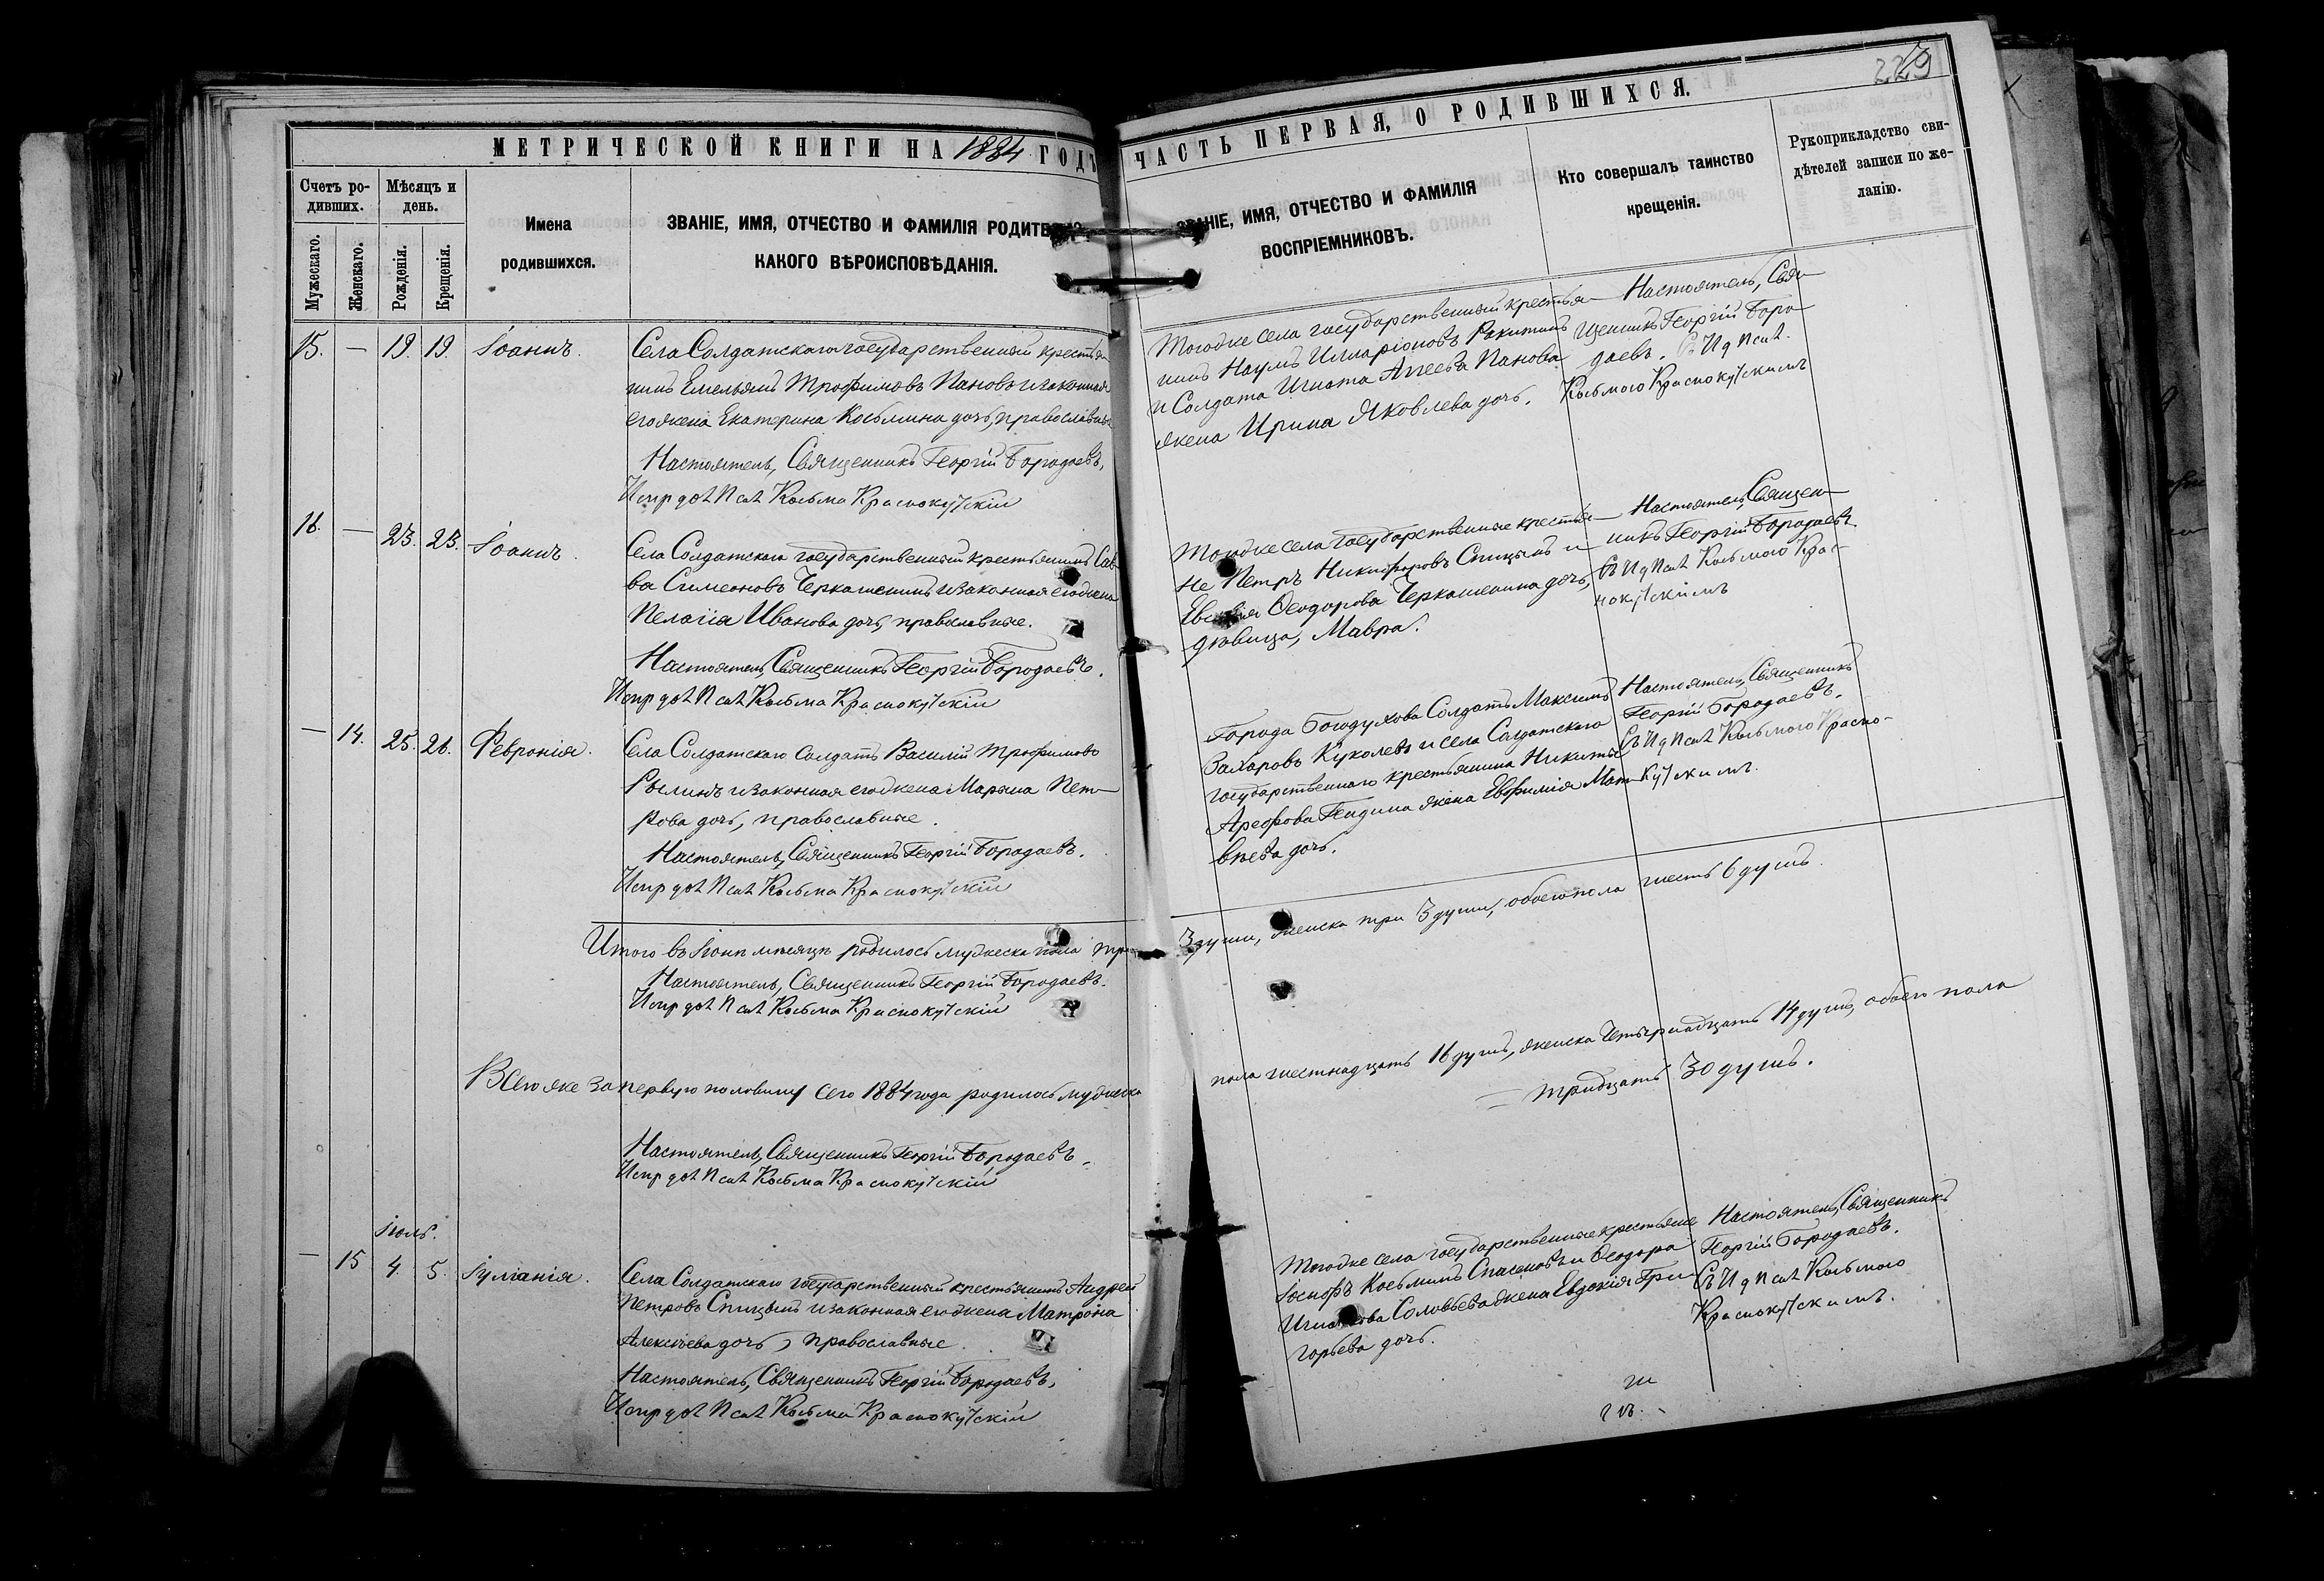 229
МЕТРИЧЕСКОЙ КНИГИ НА 1884 ГОДЪ
ЧАСТЬ ПЕРВАЯ, О РОДИВШИХСЯ.
Счетъ ро-
дивших.
Мѣсяцъ и
день.
Мужескаго.
Женскаго.
Рожденія.
Крещенія.
Имена
родившихся.
ЗВАНІЕ, ИМЯ, ОТЧЕСТВО И ФАМИЛІЯ
КАКОГО ВѢРОИСПОВѢДАНІЯ.
ИМЯ, ОТЧЕСТВО И ФАМИЛІЯ
ВОСПРІЕМНИКОВЪ.
Кто совершалъ таинство
крещенія.
Рукоприкладство сви-
дѣтелей записи по же-
ланію.
15. — 19. 19. Іоаннъ.
Села Солдатскаго государственный крестья
нинъ Емельянъ Трофимовъ Пановъ и законная
его жена Екатерина Косьмина дочь, православные
Настоятель, Священникъ Георгій Бородаевъ,
Испр дол Псал Косьма Краснокутскій
Тогоже села государственный крестья-
нинъ Наумъ Илларіоновъ Ракитинъ
и Солдата Игната Агеева Панова
жена Ирина Яковлева дочь.
Настоятель, Свя-
щенникъ Георгій Боро-
даевъ. Съ И д Псал.
Косьмою Краснокутскимъ
16. — 23. 23. Іоаннъ.
Села Солдатскаго государственный крестьянинъ Сав-
ва Симеоновъ Черкашенинъ и законная его жена
Пелагія Иванова дочь, православные.
Настоятель, Священникъ Георгій Бородаевъ.
Испр дол Псал Косьма Краснокутскій
Тогоже села государственные крестья-
не Петръ Никифоровъ Спицынъ и
Ѳеодорова Черкашенина дочь,
дѣвица, Мавра.
Настоятель, Священ-
никъ Георгій Бородаевъ.
Съ И д Псал Косьмою Крас-
нокутскимъ
— 14. 25. 26. Февронія.
Села Солдатскаго Солдатъ Василій Трофимовъ
Рылинъ и законная его жена Марѳа Пет-
рова дочь, православные.
Настоятель, Священникъ Георгій Бородаевъ.
Испр дол Псал Косьма Краснокутскій
Города Богодухова Солдатъ Максимъ
Захаровъ Куколевъ и села Солдатскаго
государственнаго крестьянина Никиты
Арефова жена Евфимія Мат-
вѣева дочь.
Настоятель, Священникъ
Георгій Бородаевъ.
Съ И д Псал Косьмою Красно-
кутскимъ.
Итого въ Іюнѣ мѣсяцѣ родилось мужеска пола три
3 души, женска три 3 души, обоего пола шесть 6 душъ.
Настоятель, Священникъ Георгій Бородаевъ.
Испр дол Псал Косьма Краснокутскій
Всего же за первую половину сего 1884 года родилось мужеска
пола шестнадцать 16 душъ, женска четырнадцать 14 душъ, обоего пола
тридцать 30 душъ.
Настоятель, Священникъ Георгій Бородаевъ.
Испр дол Псал Косьма Краснокутскій
Іюль.
— 15 4. 5. Іуліанія.
Села Солдатскаго государственный крестьянинъ Андрей
Петровъ Спицынъ и законная его жена Матрона
Алексѣева дочь, православные.
Настоятель, Священникъ Георгій Бородаевъ,
Испр дол Псал Косьма Краснокутскій
Тогоже села государственные крестьяне
Іосифъ Косьминъ Спасеновъ и Ѳеодора
Соловьева жена Евдокія Гри-
горьева дочь.
Настоятель, Священникъ
Георгій Бородаевъ.
Съ И д Псал Косьмою
Краснокутскимъ.